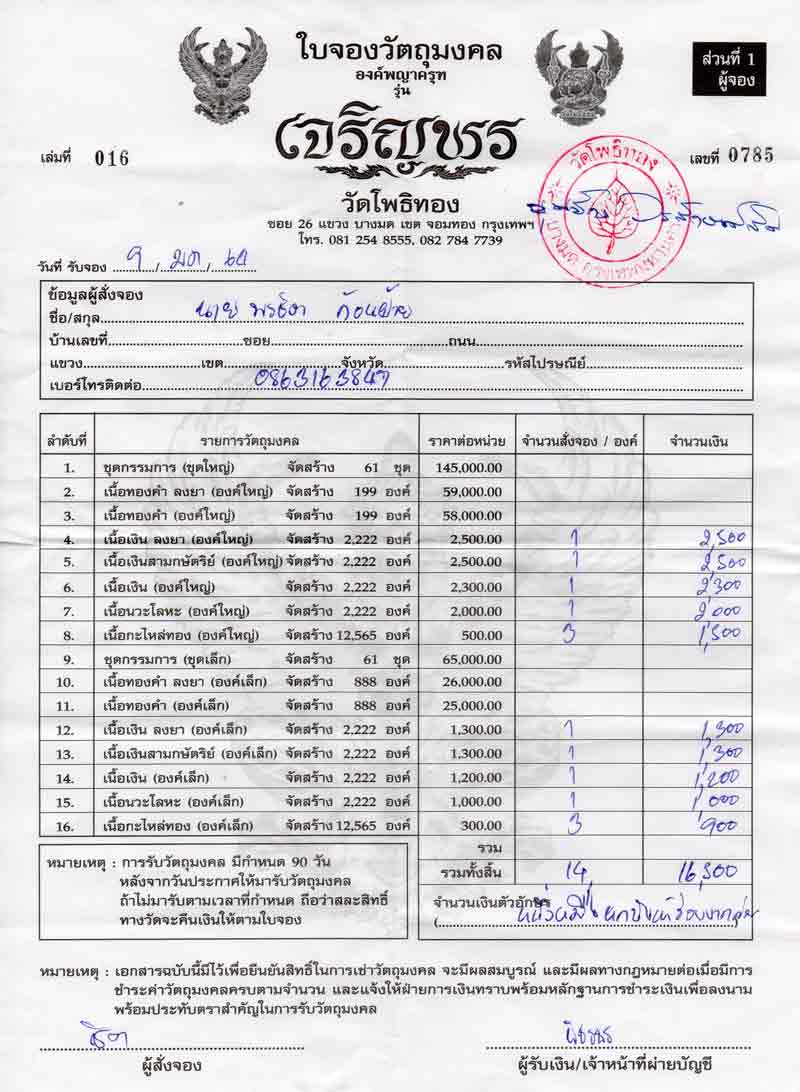 ใบจองวัตถุมงคล
องค์พญาครุฑ
รุ่น
เจริญพร
ส่วนที่ 1
ผู้จอง
เล่มที่ 016
เลขที่ 0785
วัดโพธิทอง
ซอย 26 แขวง บางมด เขต จอมทอง กรุงเทพฯ
โทร. 081 254 8555, 082 784 7739
วัดโพธิทอง
วันที่ รับจอง 9 / มค / 60
ข้อมูลผู้สั่งจอง
ชื่อ/สกุล นาย
บ้านเลขที่ ซอย ถนน
แขวง เขต จังหวัด รหัสไปรษณีย์
เบอร์โทรติดต่อ 0863163847
ลำดับที่ รายการวัตถุมงคล ราคาต่อหน่วย จำนวนสั่งจอง / องค์ จำนวนเงิน
1. ชุดกรรมการ (ชุดใหญ่) จัดสร้าง 61 ชุด 145,000.00
2. เนื้อทองคำ ลงยา (องค์ใหญ่) จัดสร้าง 199 องค์ 59,000.00
3. เนื้อทองคำ (องค์ใหญ่) จัดสร้าง 199 องค์ 58,000.00
4. เนื้อเงิน ลงยา (องค์ใหญ่) จัดสร้าง 2,222 องค์ 2,500.00 1 2,500
5. เนื้อเงินสามกษัตริย์ (องค์ใหญ่) จัดสร้าง 2,222 องค์ 2,500.00 1 2,500
6. เนื้อเงิน (องค์ใหญ่) จัดสร้าง 2,222 องค์ 2,300.00 1 2,300
7. เนื้อนวะโลหะ (องค์ใหญ่) จัดสร้าง 2,222 องค์ 2,000.00 1 2,000
8. เนื้อกะไหล่ทอง (องค์ใหญ่) จัดสร้าง 12,565 องค์ 500.00 3 1,500
9. ชุดกรรมการ (ชุดเล็ก) จัดสร้าง 61 ชุด 65,000.00
10. เนื้อทองคำ ลงยา (องค์เล็ก) จัดสร้าง 888 องค์ 26,000.00
11. เนื้อทองคำ (องค์เล็ก) จัดสร้าง 888 องค์ 25,000.00
12. เนื้อเงิน ลงยา (องค์เล็ก) จัดสร้าง 2,222 องค์ 1,300.00 1 1,300
13. เนื้อเงินสามกษัตริย์ (องค์เล็ก) จัดสร้าง 2,222 องค์ 1,300.00 1 1,300
14. เนื้อเงิน (องค์เล็ก) จัดสร้าง 2,222 องค์ 1,200.00 1 1,200
15. เนื้อนวะโลหะ (องค์เล็ก) จัดสร้าง 2,222 องค์ 1,000.00 1 1,000
16. เนื้อกะไหล่ทอง (องค์เล็ก) จัดสร้าง 12,565 องค์ 300.00 3 900
รวม
รวมทั้งสิ้น 14 16,500
หมายเหตุ : การรับวัตถุมงคล มีกำหนด 90 วัน
หลังจากวันประกาศให้มารับวัตถุมงคล
ถ้าไม่มารับตามเวลาที่กำหนด ถือว่าสละสิทธิ์
ทางวัดจะคืนเงินให้ตามใบจอง
จำนวนเงินตัวอักษร
(หนึ่งหมื่นหกพันห้าร้อยบาท)
หมายเหตุ : เอกสารฉบับนี้มีไว้เพื่อยืนยันสิทธิ์ในการเช่าวัตถุมงคล จะมีผลสมบูรณ์ และมีผลทางกฎหมายต่อเมื่อมีการ
ชำระค่าวัตถุมงคลครบตามจำนวน และแจ้งให้ฝ่ายการเงินทราบพร้อมหลักฐานการชำระเงินเพื่อลงนาม
พร้อมประทับตราสำคัญในการรับวัตถุมงคล
ผู้สั่งจอง
ผู้รับเงิน/เจ้าหน้าที่ฝ่ายบัญชี